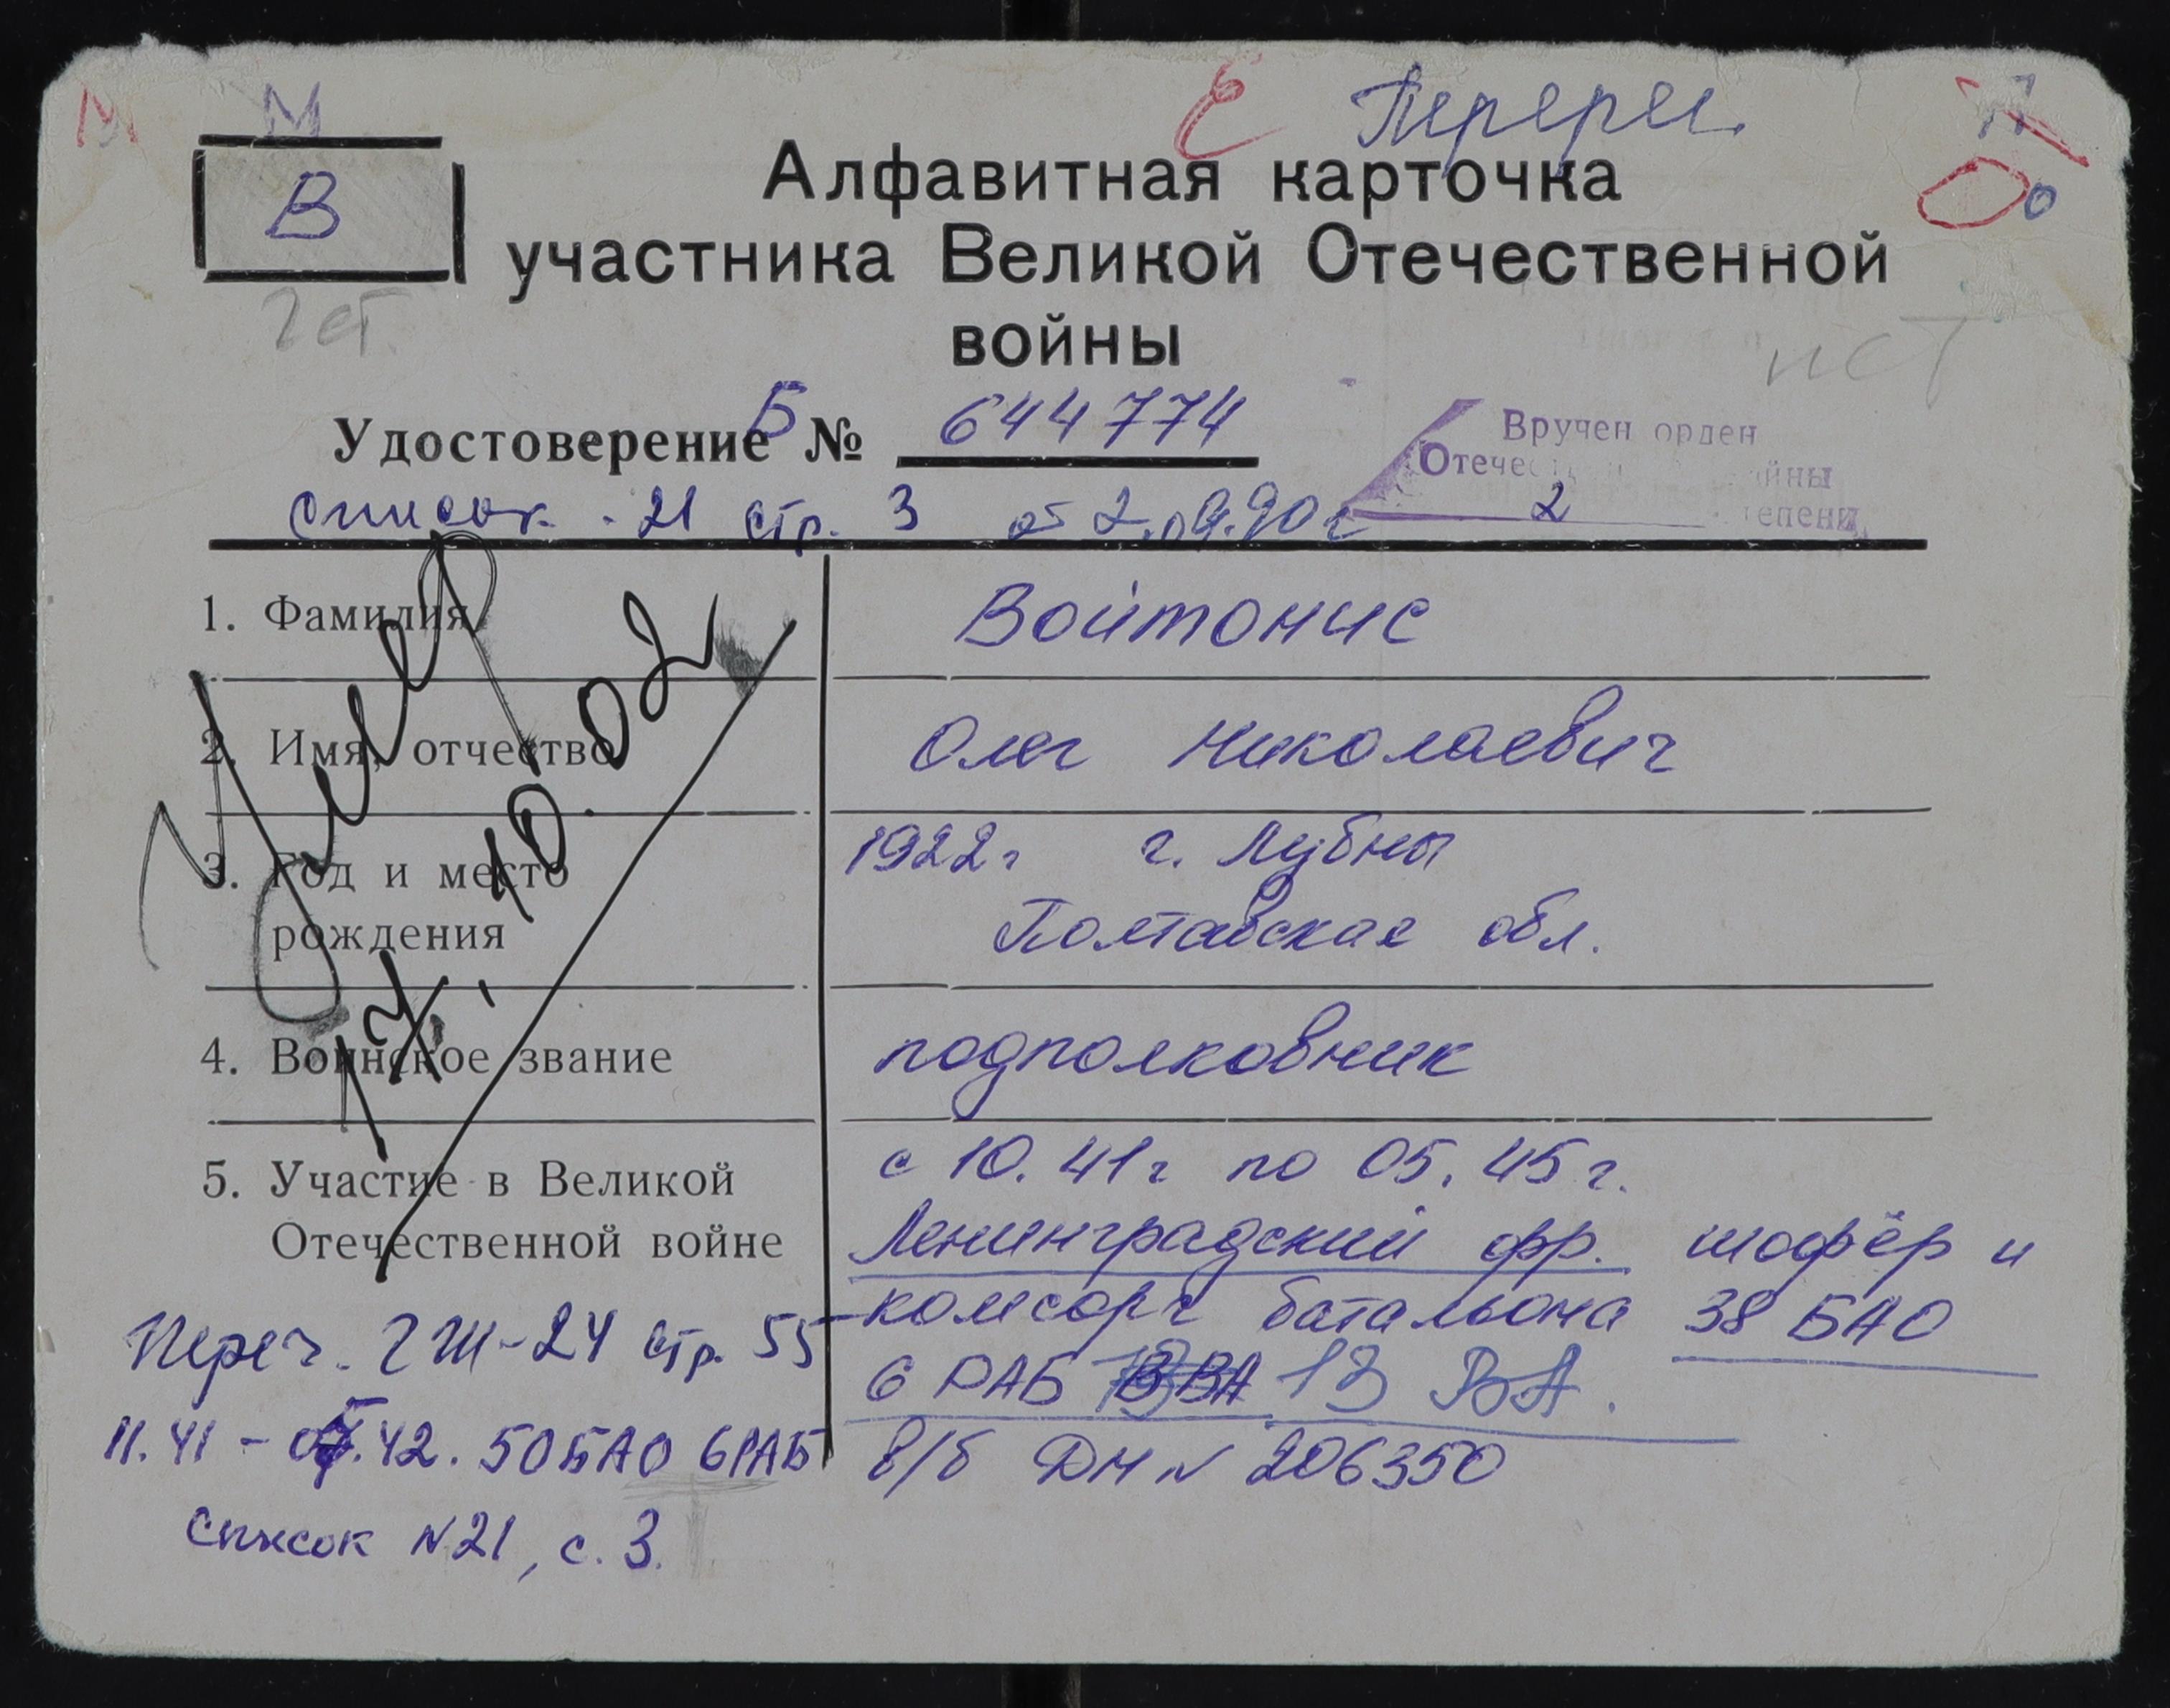 М М Е Перерег. П
В О о
Алфавитная карточка
участника Великой Отечественной
войны
ист
Удостоверение Б № 644774
Вручен орден
Отечес йны
2 тепени
список - 21 стр. 3 от 2.09.90 г
1. Фамилия Войтонис
2. Имя, отчество Олег Николаевич
3. Год и место рождения 1922г г. Лубны
Полтавская обл.
4. Воинское звание подполковник
5. Участие в Великой Отечественной войне с 10.41г по 05.45г.
Ленинградский фр. шофёр и
комсорг батальона 38 БАО
6 РАБ 13 ВА.
в/б ДМ № 206350
Умер
17.10.02
Переч. ГШ-24 стр. 55
11.41 - 42. 50 БАО 6 РАБ
Список №21, с. 3.